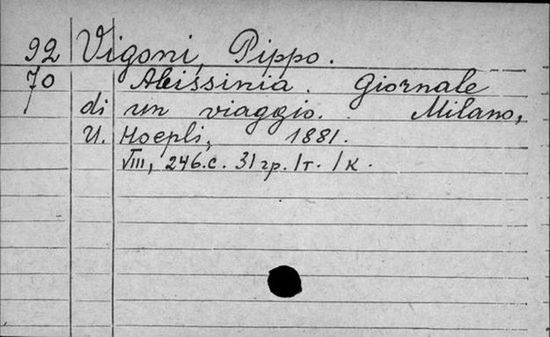 92 Vigoni, Pippo.
70 Abissinia. Giornale
di un viaggio. Milano,
U. Hoepli, 1881.
VIII, 246.c. 31 гр. 1т. 1к.